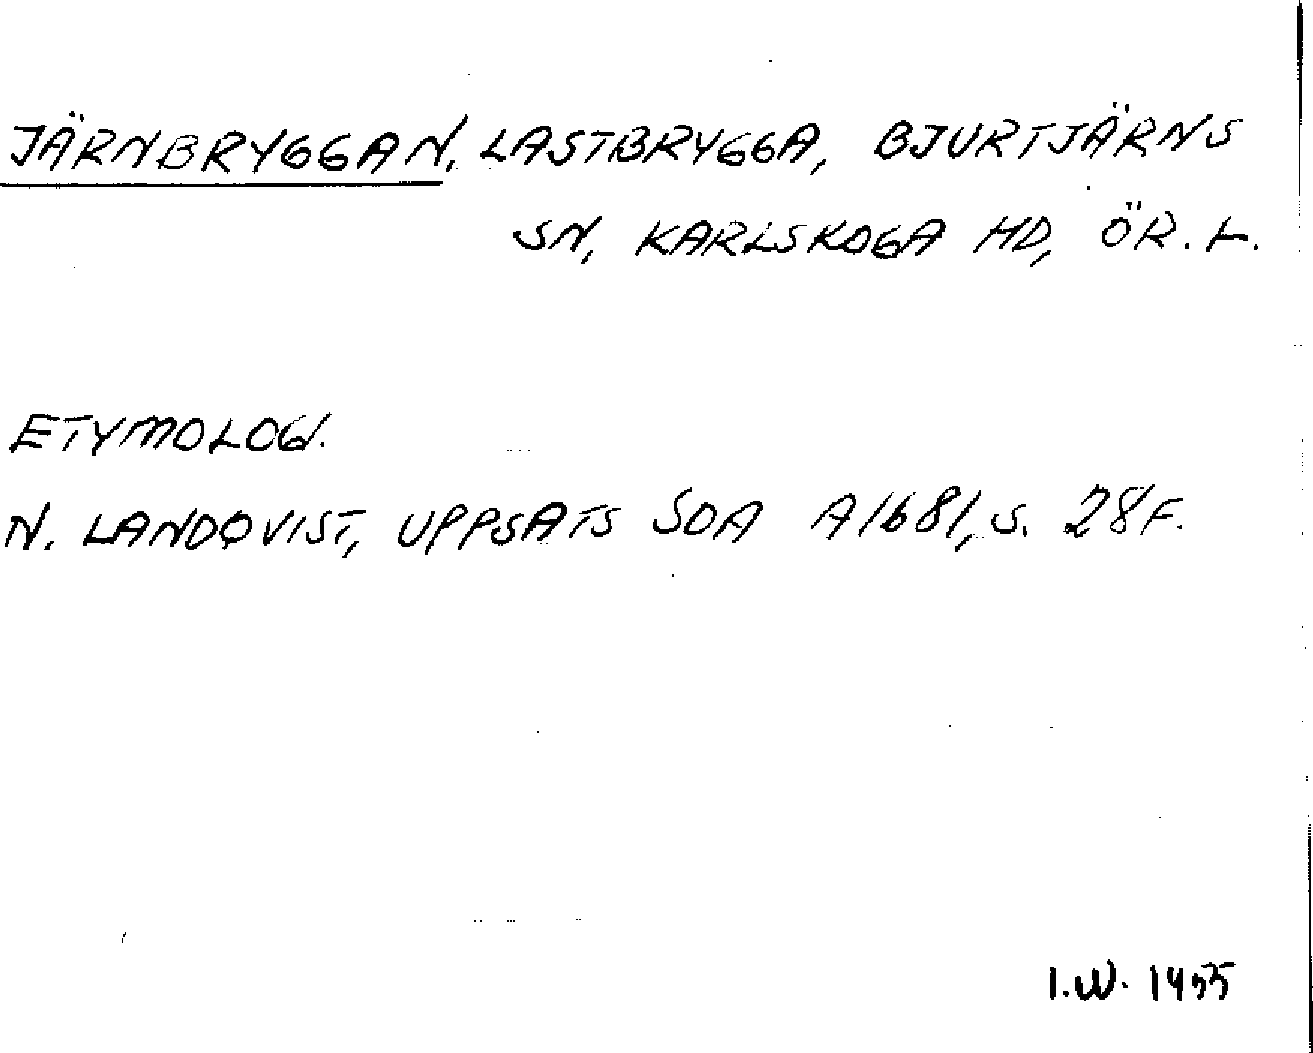 JÄRNBRYGGAN, LASTBRYGGA, BJURTJÄRNS
SN, KARLSKOGA HD, ÖR. L.
ETYMOLOG.
N. LANDQVIST, UPPSATS SOA A1681, S. 28F.
I.W. 1955